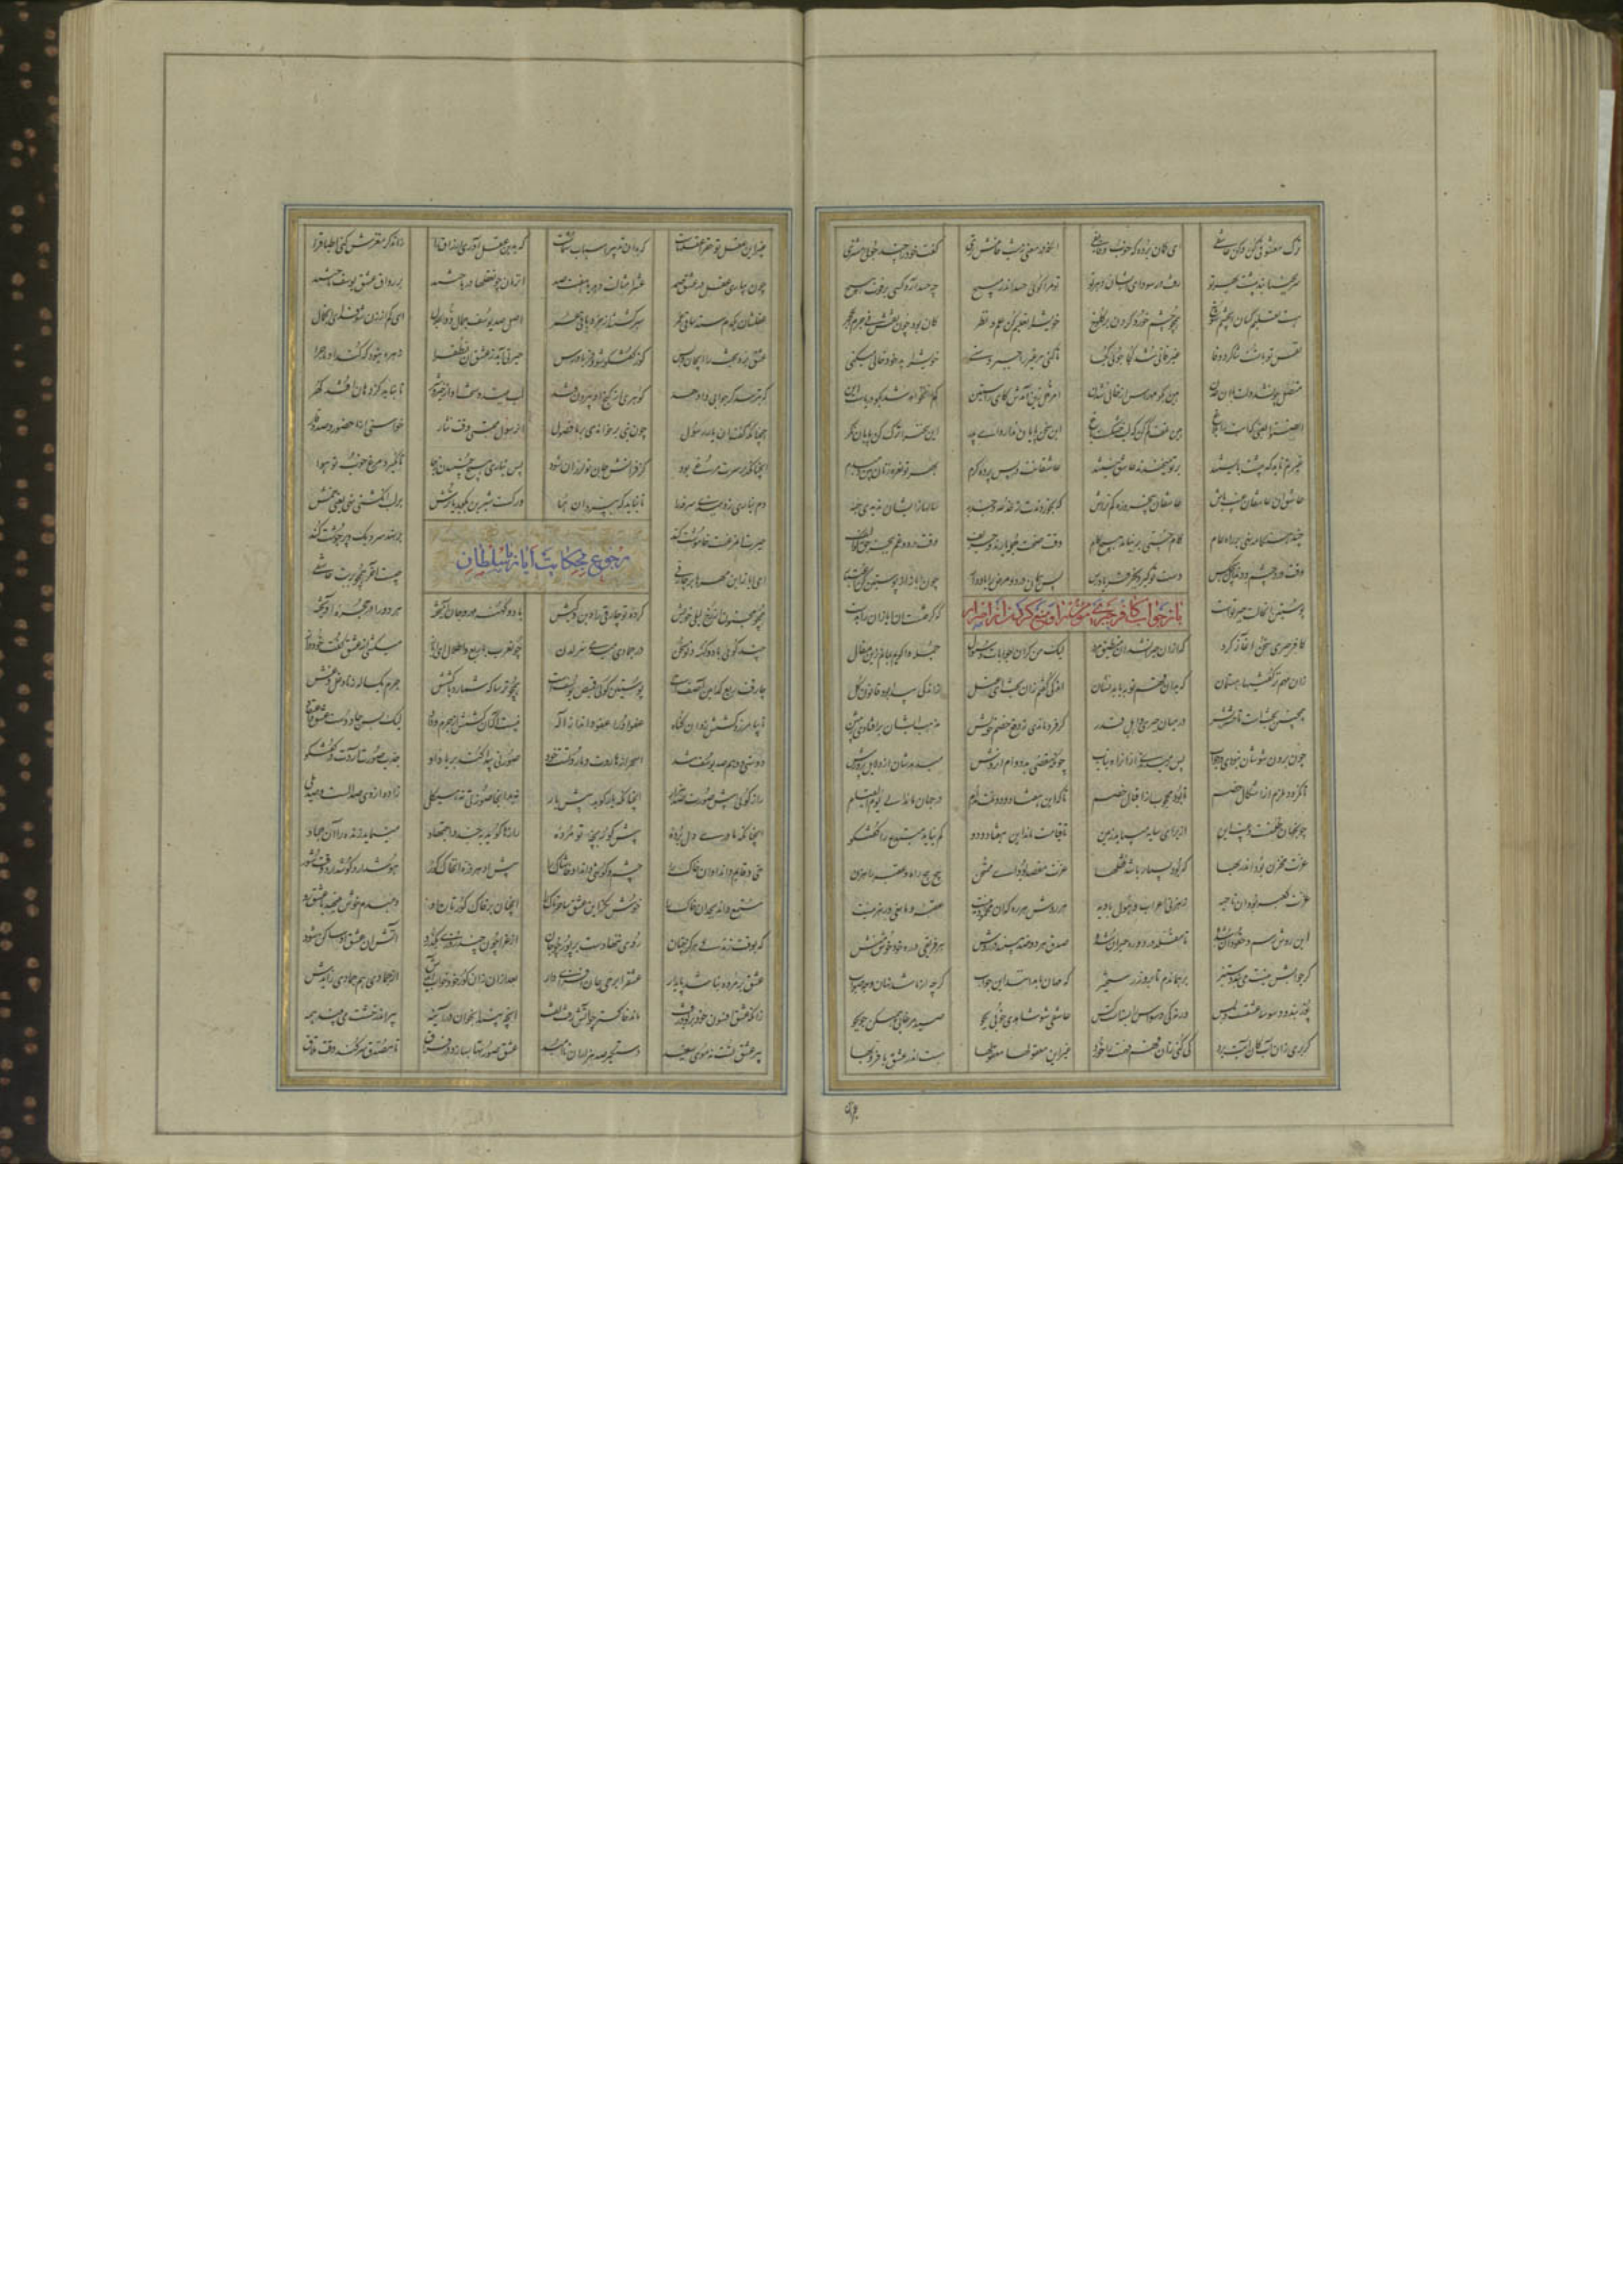 ترک معشوقی کن و کن عاشقی ای گمان برده که خوب و فایقی ایکه در معنی ز شب خامش تری گفت خود را چند جویی مشتری
سر بجنبانند پیشت بهر تو رفت در سودای ایشان دهر تو تو مرا گویی حسد اندر مپیچ چه حسد آرد کسی از فوت هیچ
هست تعلیم خسان ای چشم شوخ همچو نقش خرد کردن بر کلوخ خویش را تعلیم کن عشق و نظر کان بود چون نقش فی جرم الحجر
نفس تو با تست شاکر در وفا غیر فانی شد کجا جویی کجا تا کنی مر غیر را حبر و سنی خویش را بدخو و خالی میکنی
متصل چون شد دلت با آن عدن هین بگو مهراس از خالی شدن امر قل زین آمدش کای راستین کم نخواهد شد بگو دریاست این
انصتوا یعنی که آبت را بلاغ هین تلف کم کن که لب خشکست باغ این سخن پایان ندارد ای پدر این سخن را ترک کن پایان نگر
غیرتم ناید که پیشت بایستند بر تو میخندند عاشق نیستند عاشقانت در پس پرده کرم بهر تو نعره زنان بین دم بدم
عاشق آن عاشقان غیب باش عاشقان پنج روزه کم تراش که بخوردندت ز خدعه و جذبه سالها زیشان ندیدی حبه
چند هنگامه نهی بر راه عام گام خستی بر نیامد هیچ کام وقت صحت جمله یارند و حریف وقت درد و غم بجز حق کو الیف
وقت درد چشم و دندان هیچکس دست تو گیرد بجز فریاد رس پس همان درد و مرض را یاد دار چون ایاز از پوستین گیر اعتبار
پوستین آن حالت درد توست که گرفتست آن ایاز آن را بدست
باز جواب کافر جبری مؤمن را و منع کردن
کافر جبری سخن آغاز کرد که از آن حیران شد آن منطیق مرد لیک من گر آن جوابات و سؤال جمله واگویم بمانم زین مقال
زان مهم تر گفتنیها هستمان که بدان فهم تو به یابد نشان اندکی گفتم زان بحث ای عتل ز اندکی پیدا بود قانون کل
همچنین بحثست تا حشر بشر در میان جبری و اهل قدر گر فرو ماندی ز دفع خصم خویش مذهب ایشان بر افتادی ز پیش
چون برون شوشان نبودی در جواب پس رمیدندی از آن راه تباب چونکه مقضی بد دوام آن روش میدهدشان از دلایل پرورش
تا نگردد ملزم از اشکال خصم تا بود محجوب از اقبال خصم تا که این هفتاد و دو ملت مدام در جهان ماند الی یوم القیام
چون جهان ظلمتست و غیب این از برای سایه می باید زمین تا قیامت ماند این هفتاد و دو کم نیاید مبتدع را گفتگو
عزت مخزن بود اندر بها که برو بسیار باشد قفلها عزت مقصد بود ای ممتحن پیچ پیچ راه و عقبه و راهزن
عزت کعبه بود آن ناحیه رهزنی اعراب و طول بادیه هر روش هر ره که آن محمود نیست عقبه و مانعی و رهزنیست
این روش خصم و حقود آن شده تا مقلد در دو ره حیران شده صدق هر دو ضد بیند در روش هر فریقی در ره خود خوش منش
گر جوابش نیست می بندد ستیز بر همان دم تا بروز رستخیز که مهان ما بدانند این جواب گرچه از ما شد نهان وجه صواب
پوزبند وسوسه عشقست و بس ورنه کی وسواس را بستست کس عاشقی شو شاهدی خوبی بجو صید مرغابی همی کن جو بجو
کی بری زان آب کان آبت برد کی کنی زان فهم فهمت را خورد غیر این معقولها معقولها یابی اندر عشق با فر و بها
غیر این عقل تو حق را عقلهاست که بدان تدبیر اسباب سماست که بدین عقل آوری ارزاق را زان دگر مفرش کنی اطباق را
چون ببازی عقل در عشق صمد عشر امثالت دهد یا هفتصد آن زنان چون عقلها در باختند بر رواق عشق یوسف تاختند
عقلشان یکدم ستد ساقی عمر سیر گشتند از خرد باقی عمر اصل صد یوسف جمال ذوالجلال ای کم از زن شو فدای آن جمال
عشق برد بحث را ای جان و بس کو ز گفتگو شود فریاد رس حیرتی آید ز عشق آن نطق را زهره نبود که کند او ماجرا
که بترسد گر جوابی وا دهد گوهری از لنج او بیرون فتد لب ببندد سخت او از خیر و شر تا نباید کز دهان افتد گهر
همچنانکه گفت آن یار رسول چون نبی بر خواندی بر ما فصول آن رسول مجتبی وقت نثار خواستی از ما حضور و صد وقار
آنچنانکه بر سرت مرغی بود کز فواتش جان تو لرزان شود پس نیاری هیچ جنبیدن ز جا تا نگیرد مرغ خوب تو هوا
دم نیاری زد ببندی سرفه را تا نباید که بپرد آن هما ور کست شیرین بگوید یا ترش بر لب انگشتی نهی یعنی خمش
حیرت آن مرغست خاموشت کند بر نهد سر دیگ و پر جوشت کند
رجوع بحکایت ایاز با سلطان
ای ایاز این مهرها بر چارقی چیست آخر همچو بر بت عاشقی
همچو مجنون از رخ لیلی خویش کرده تو چارقی را دین و کیش با دو کهنه مهر جان آمیخته هر دو را در حجره آویخته
چند گویی با دو کهنه نو سخن در جمادی میدمی سر کهن چون عرب با ربع و اطلال ای ایاز میکشی از عشق گفت خود دراز
چارقت ربع کدامین آصفست پوستین گویی قمیص یوسفست همچو ترسا که شمارد با کشش جرم یکساله زنا و غل و غش
تا بیامرزد کشش زو آن گناه عفو او را عفو داند از اله نیست آگه آن کشش از جرم و داد لیک بس جادوست عشق و اعتقاد
دوستی و وهم صد یوسف تند اسحر از هاروت و ماروتست خود صورتی پیدا کند بر یاد او جذب صورت آردت در گفتگو
راز گویی پیش صورت صد هزار آنچنانکه یار گوید پیش یار نه بد آنجا صورتی نه هیکلی زاده از وی صد الست و صد بلی
آنچنانکه مادری دل برده پیش گور بچه نو مرده رازها گوید بجد و اجتهاد مینماید زنده او را آن جماد
حی و قایم داند او آن خاک را چشم و گوشی داند او خاشاک را پیش او هر ذره آن خاک گور هوش دارد گوش دارد وقت شور
مستمع داند بجد آن خاک را خوش نگر این عشق ساحرناک را آنچنان بر خاک گور تازه او دمبدم خوش مینهد با اشک رو
که بوقت زندگی هرگز چنان روی ننهادست بر پور چو جان از عزا چون چند روزی بگذرد آتش آن عشق او ساکن شود
عشق بر مرده نباشد پایدار عشق را بر حی جان افزای دار بعد از آن زان گور خود خواب آیدش از جمادی هم جمادی زایدش
زانکه عشق افسون خود بربود و رفت ماند خاکستر چو آتش رفت تفت آنچه بیند آن جوان در آینه پیر اندر خشت می بیند همه
پیر عشق تست نه موی سفید دستگیر صد هزاران ناامید عشق صورتها بسازد در فراق تا مصور سر کند وقت تلاق